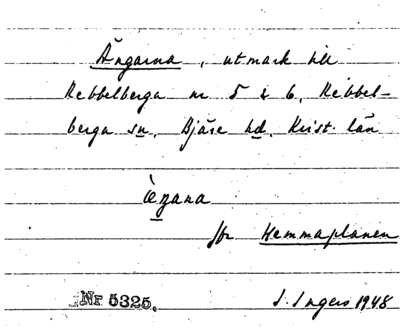 Ängarna, utmark till
Rebbelberga nr 5 & 6. Rebbel-
berga sn. Bjäre hd. Krist. län
fr Hemmaplanen
Nr 5325. I. Ingers 1948